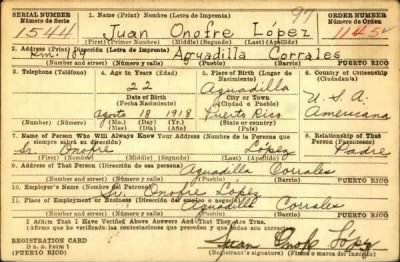 SERIAL NUMBER
Número de Serie
1544
1. Name (Print) Nombre (Letra de Imprenta)
99
Juan Onofre López
(First) (Primer Nombre) (Middle) (Segundo) (Last) (Apellido)
ORDER NUMBER
Número de Orden
1145
2. Address (Print) Dirección (Letra de Imprenta)
Km. 189 Aguadilla Corrales
PUERTO RICO
(Number and street) (Número y calle) (Town) (Pueblo) (Barrio) (Barrio)
3. Telephone (Teléfono)
4. Age in Years (Edad)
22
Date of Birth
(Fecha Nacimiento)
Agosto 18 1918
(Mo.) (Day) (Yr.)
(Mes) (Día) (Año)
5. Place of Birth (Lugar de Nacimiento)
Aguadilla
City or Town
(Ciudad o Pueblo)
Puerto Rico
(State or country)
(Estado o país)
6. Country of Citizenship
(Ciudadanía)
U.S.A.
Americana
7. Name of Person Who Will Always Know Your Address (Nombre de la Persona que siempre sabrá su dirección)
Sr. Onofre López
(First) (Nombre) (Middle) (Segundo) (Last) (Apellido)
8. Relationship of That Person (Parentesco)
Padre
9. Address of That Person (Dirección de esa persona)
Aguadilla Corrales
PUERTO RICO
(Number and street) (Número y calle) (Town) (Pueblo) (Barrio) (Barrio)
10. Employer's Name (Nombre del Patrono)
Sr. Onofre López
11. Place of Employment or Business (Dirección del empleo o negocio)
Aguadilla Corrales
PUERTO RICO
(Number and street) (Número y calle) (Town) (Pueblo) (Barrio) (Barrio)
I Affirm That I Have Verified Above Answers And That They Are True.
(Afirmo que he verificado las contestaciones que preceden y que son ciertas.)
REGISTRATION CARD
D.S.S. Form 1
(PUERTO RICO)
Juan Onofre López
(Registrant's signature) (Firma o marca del inscrito)